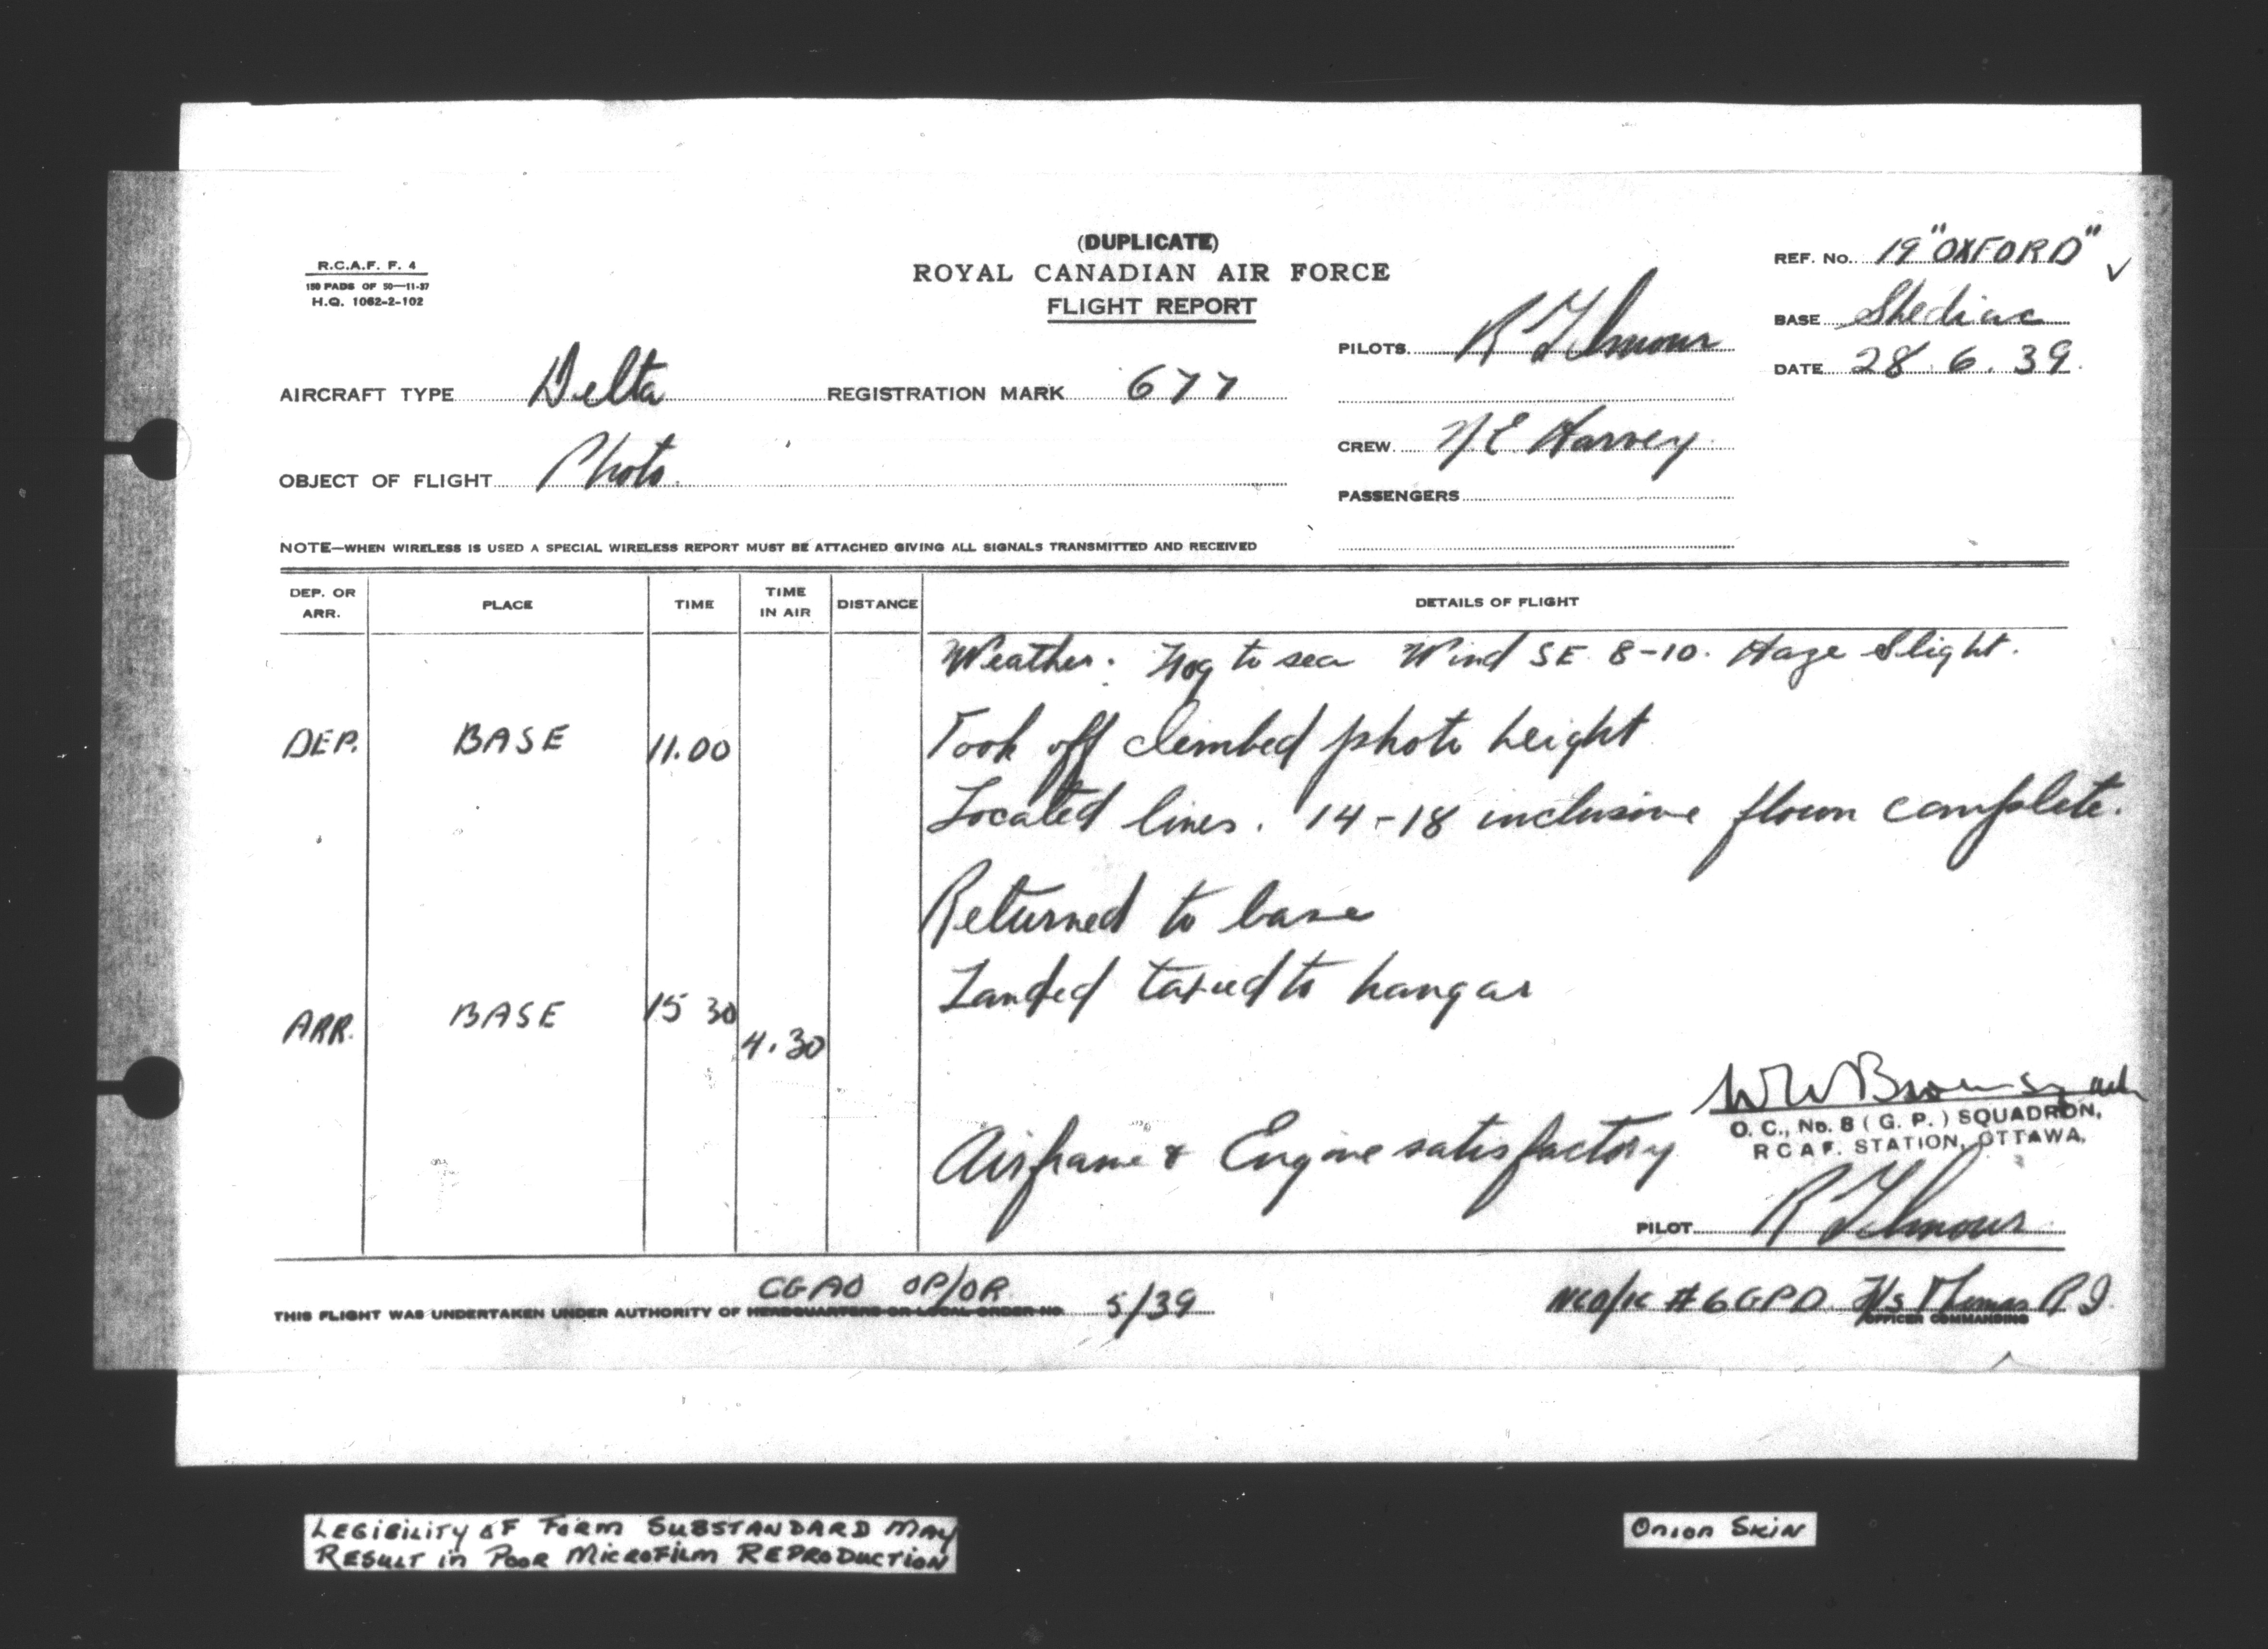 (DUPLICATE)
ROYAL CANADIAN AIR FORCE
FLIGHT REPORT
R.C.A.F. F. 4
150 PADS OF 50—11-37
H.Q. 1062-2-102
REF. No. 19 "OXFORD" ✓
BASE Shediac
DATE 28. 6. 39.
PILOTS R Gilmour
AIRCRAFT TYPE Delta REGISTRATION MARK 677
CREW N.E. Harvey
OBJECT OF FLIGHT Photo.
PASSENGERS
NOTE—WHEN WIRELESS IS USED A SPECIAL WIRELESS REPORT MUST BE ATTACHED GIVING ALL SIGNALS TRANSMITTED AND RECEIVED
DEP. OR ARR. PLACE TIME TIME IN AIR DISTANCE DETAILS OF FLIGHT
Weather. Fog to sea Wind SE 8-10. Haze Slight.
DEP. BASE 11.00 Took off climbed photo height
Located lines. 14-18 inclusive flown complete.
Returned to base
Landed taxied to hangar
ARR. BASE 15 30 4.30
W W Brown
O. C., No. 8 ( G. P. ) SQUADRON,
R C A F. STATION, OTTAWA.
Airframe & Engine satisfactory
PILOT R Gilmour
CGAO OP/OR
THIS FLIGHT WAS UNDERTAKEN UNDER AUTHORITY OF HEADQUARTERS OR LOCAL ORDER NO. 5/39
#6 GPD
OFFICER COMMANDING
LEGIBILITY OF FORM SUBSTANDARD MAY
RESULT in POOR MICROFILM REPRODUCTION
ONION SKIN